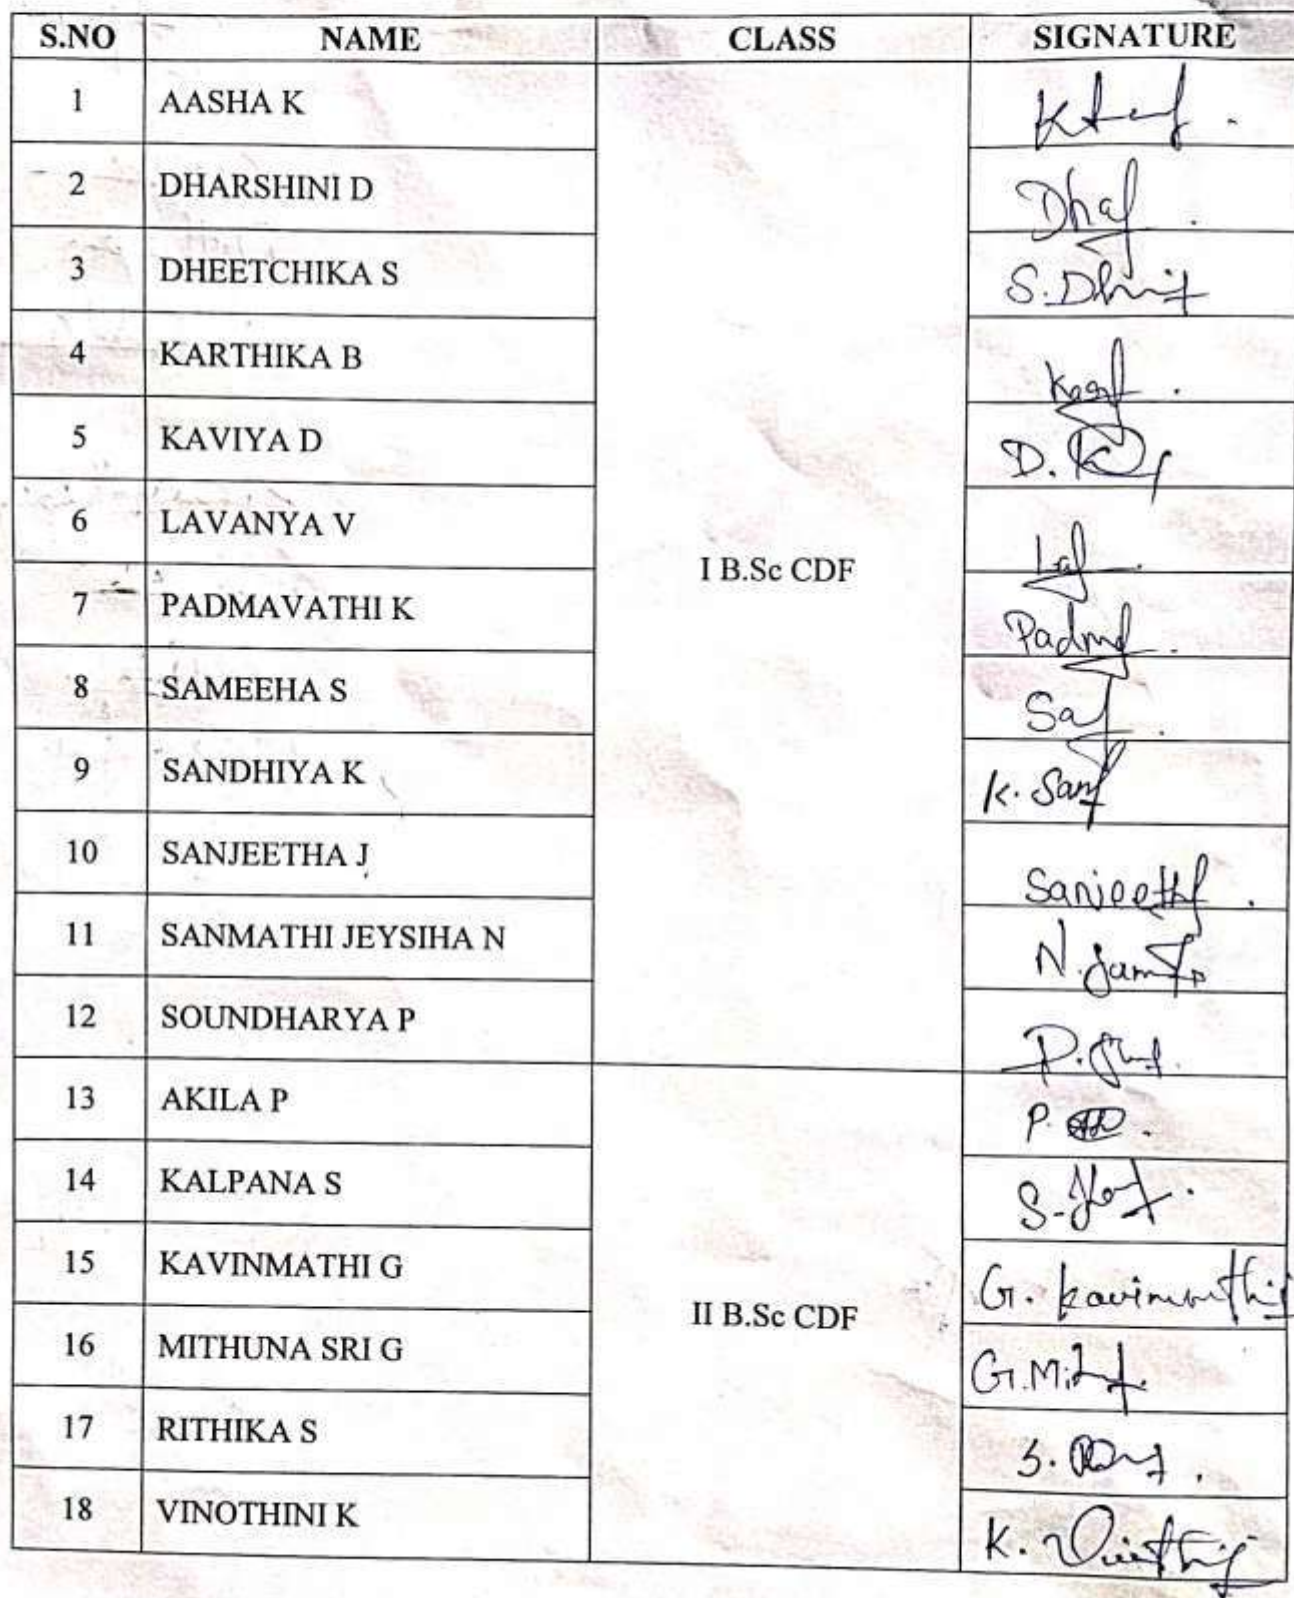 S.NO NAME CLASS SIGNATURE
1 AASHA K
2 DHARSHINI D
3 DHEETCHIKA S S.Dh
4 KARTHIKA B
5 KAVIYA D D.K
6 LAVANYA V
I B.Sc CDF
7 PADMAVATHI K
8 SAMEEHA S
9 SANDHIYA K K. San
10 SANJEETHA J Sanjeeth
11 SANMATHI JEYSIHA N
12 SOUNDHARYA P
13 AKILA P
14 KALPANA S
15 KAVINMATHI G G. Kavinmathi
II B.Sc CDF
16 MITHUNA SRI G
17 RITHIKA S
18 VINOTHINI K